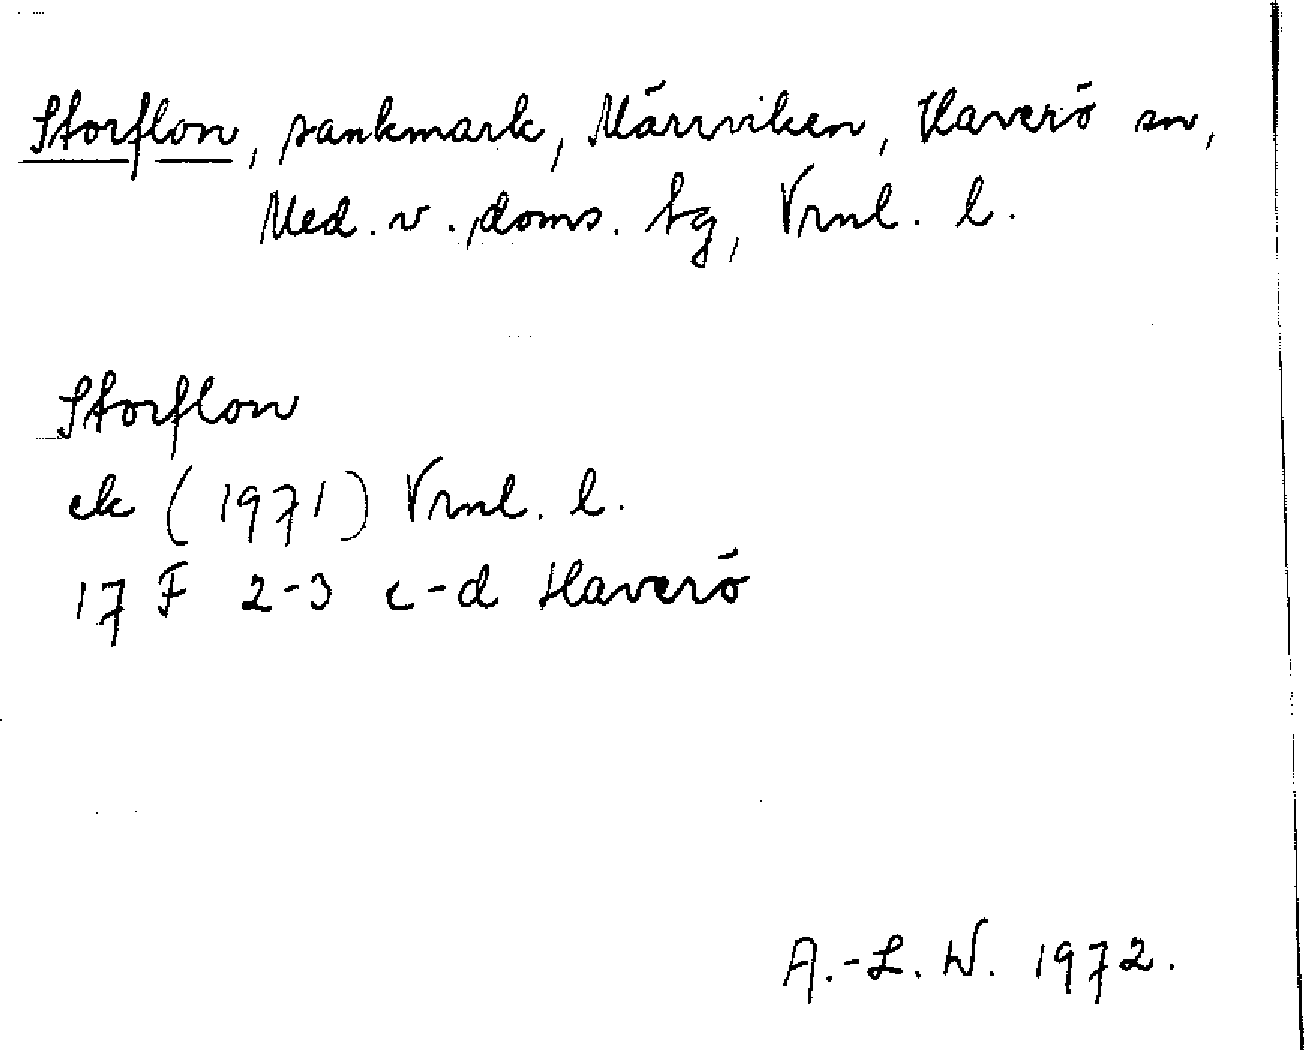 Storflon, sankmark, Märrviken, Haverö sn,
Med. v. doms. tg, Vrnl. l.
Storflon
ek (1971) Vrnl. l.
17 F 2-3 c-d Haverö
A.-L. W. 1972.